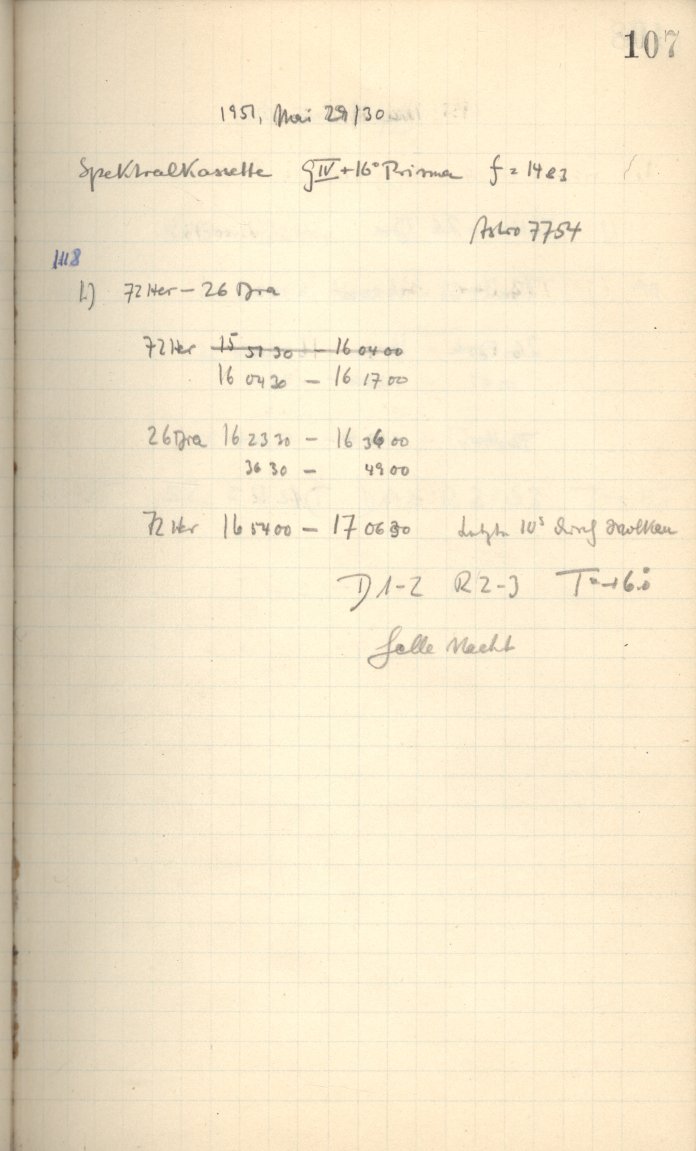 107
1951, Mai 29/30
Spektralkassette GIV+16° Prisma f = 14.83
Astro 7754
1118
1.) 72 Her – 26 Dra
72 Her 15 51 30 – 16 04 00
16 04 30 – 16 17 00
26 Dra 16 23 30 – 16 36 00
36 30 – 49 00
72 Her 16 54 00 – 17 06 30 Letzte 10s durch Wolken
D 1-2 R 2-3 T = +6.0
Helle Nacht